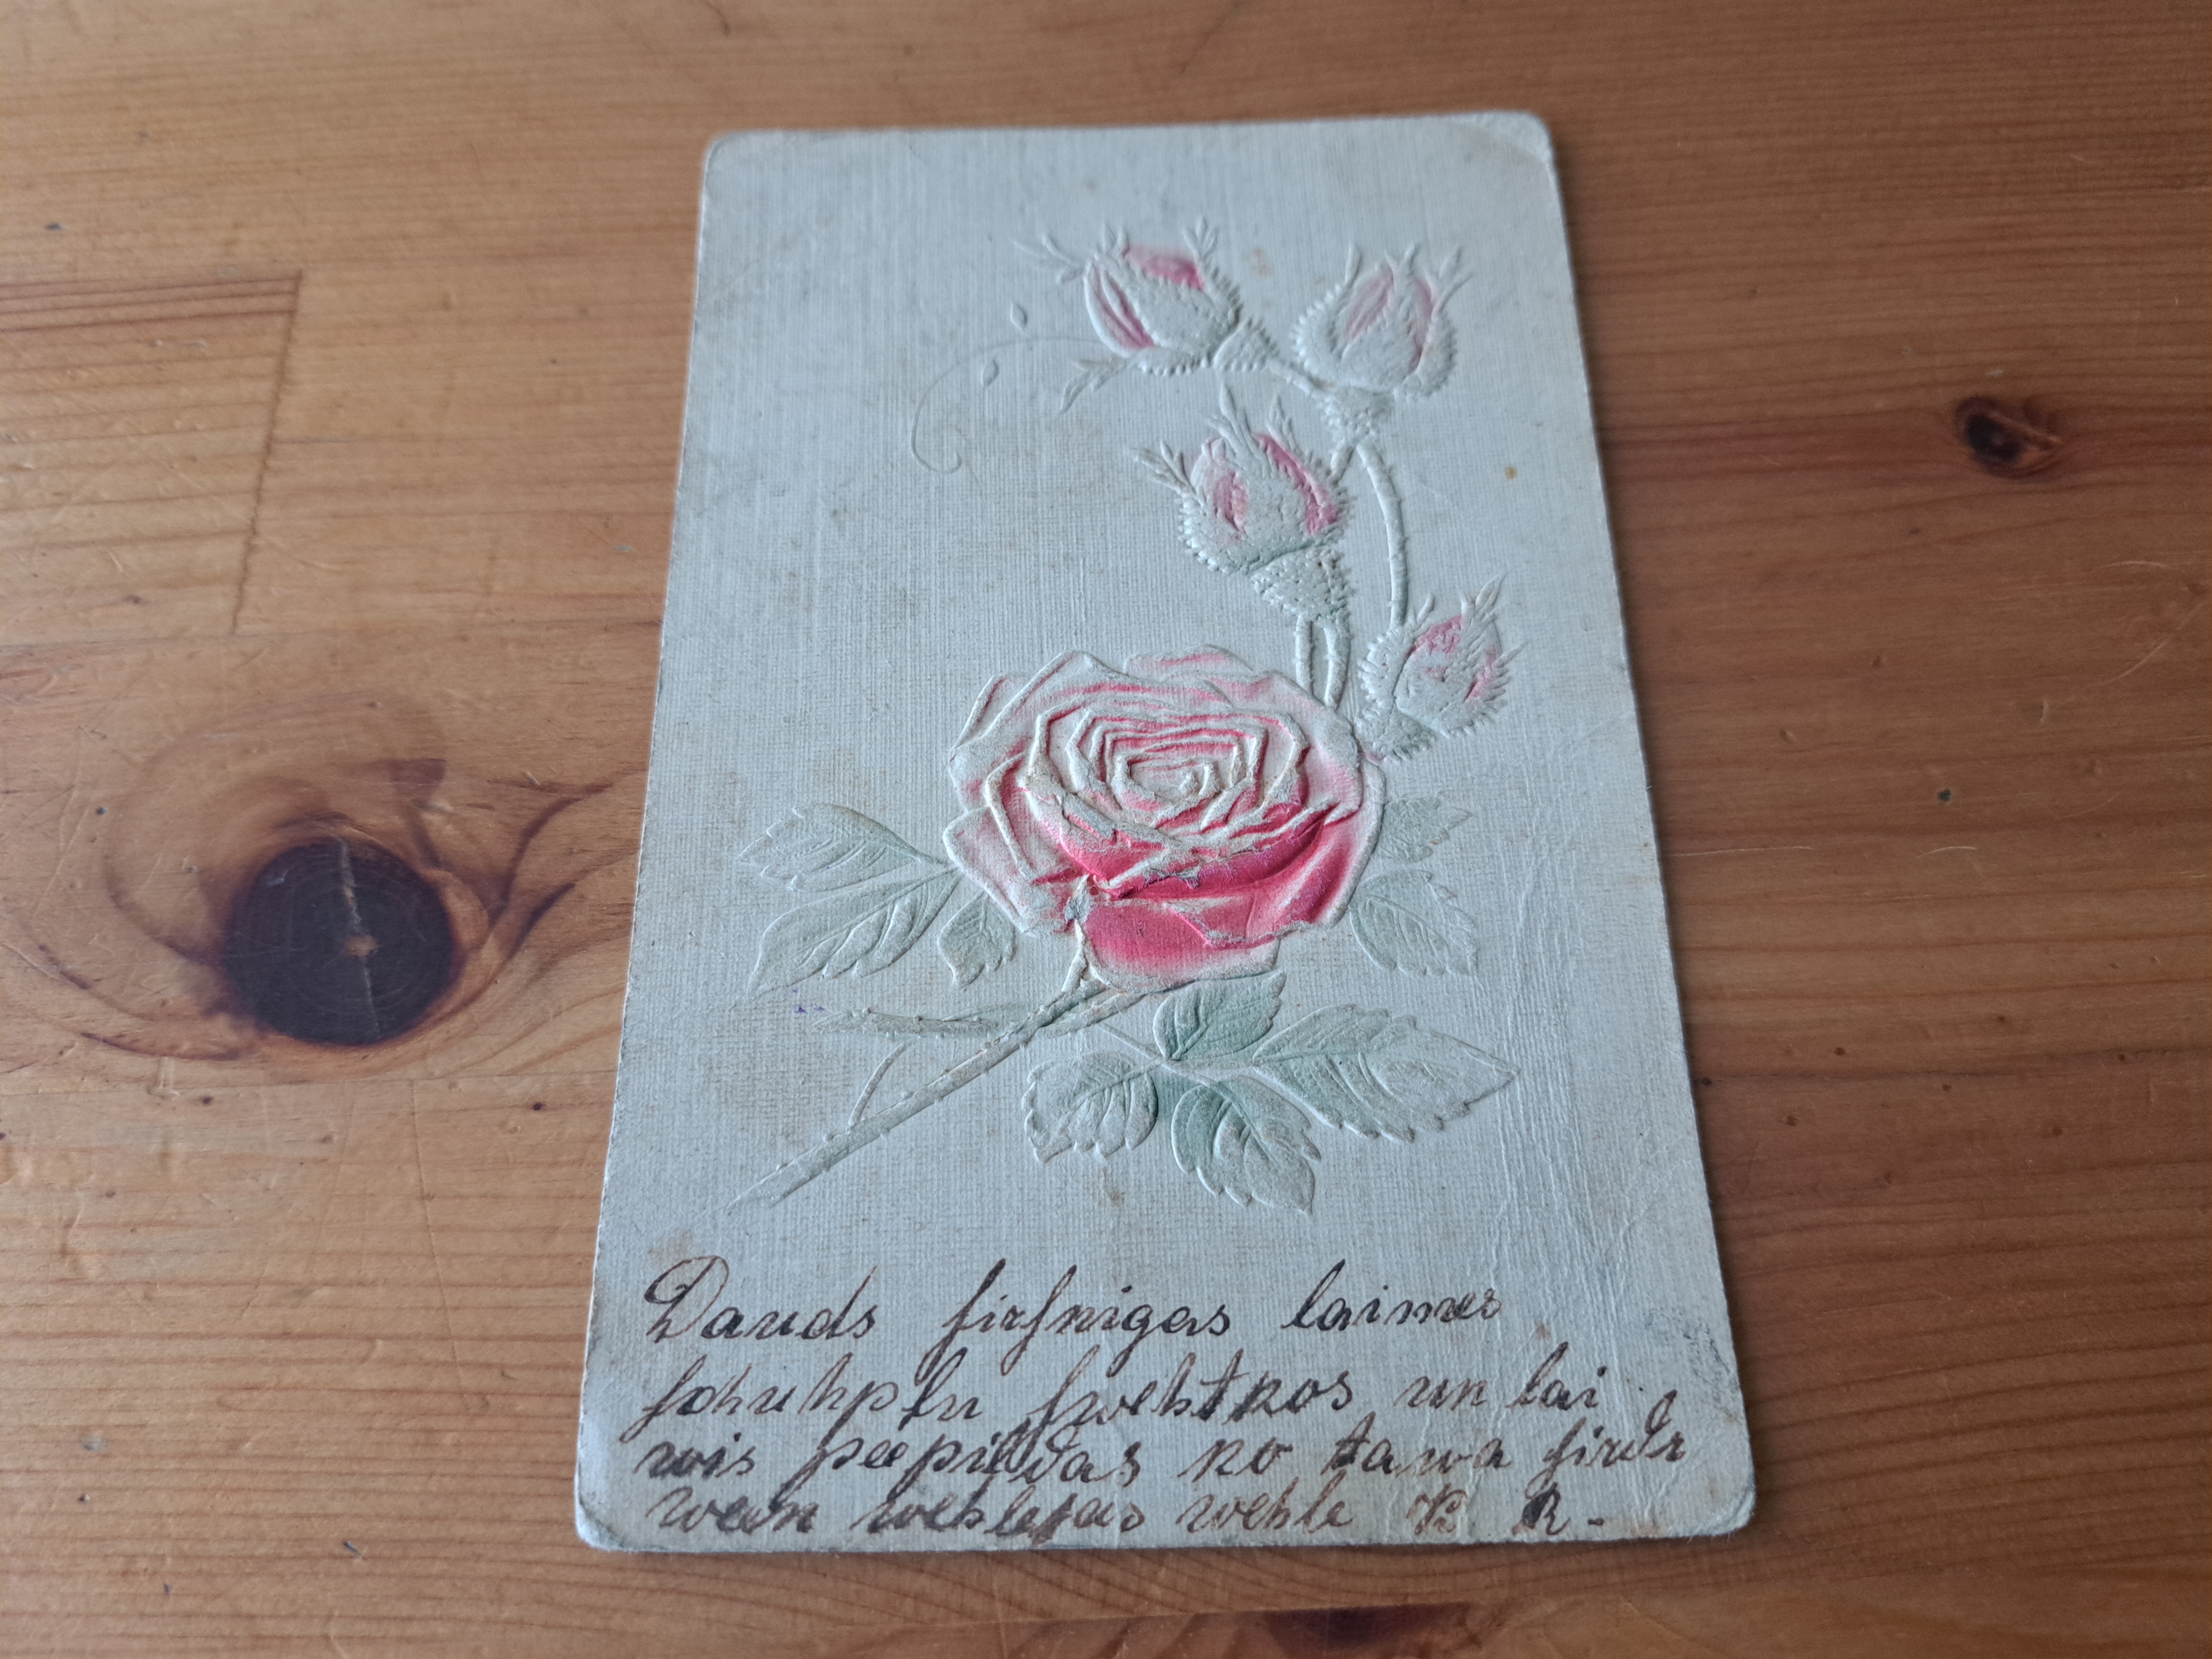 Dauds ſirſnigas laimes
ſchuhpļu ſwehtkos un lai
wis peepildas ko tawa ſirds
ween wehlejas wehle R. R.-